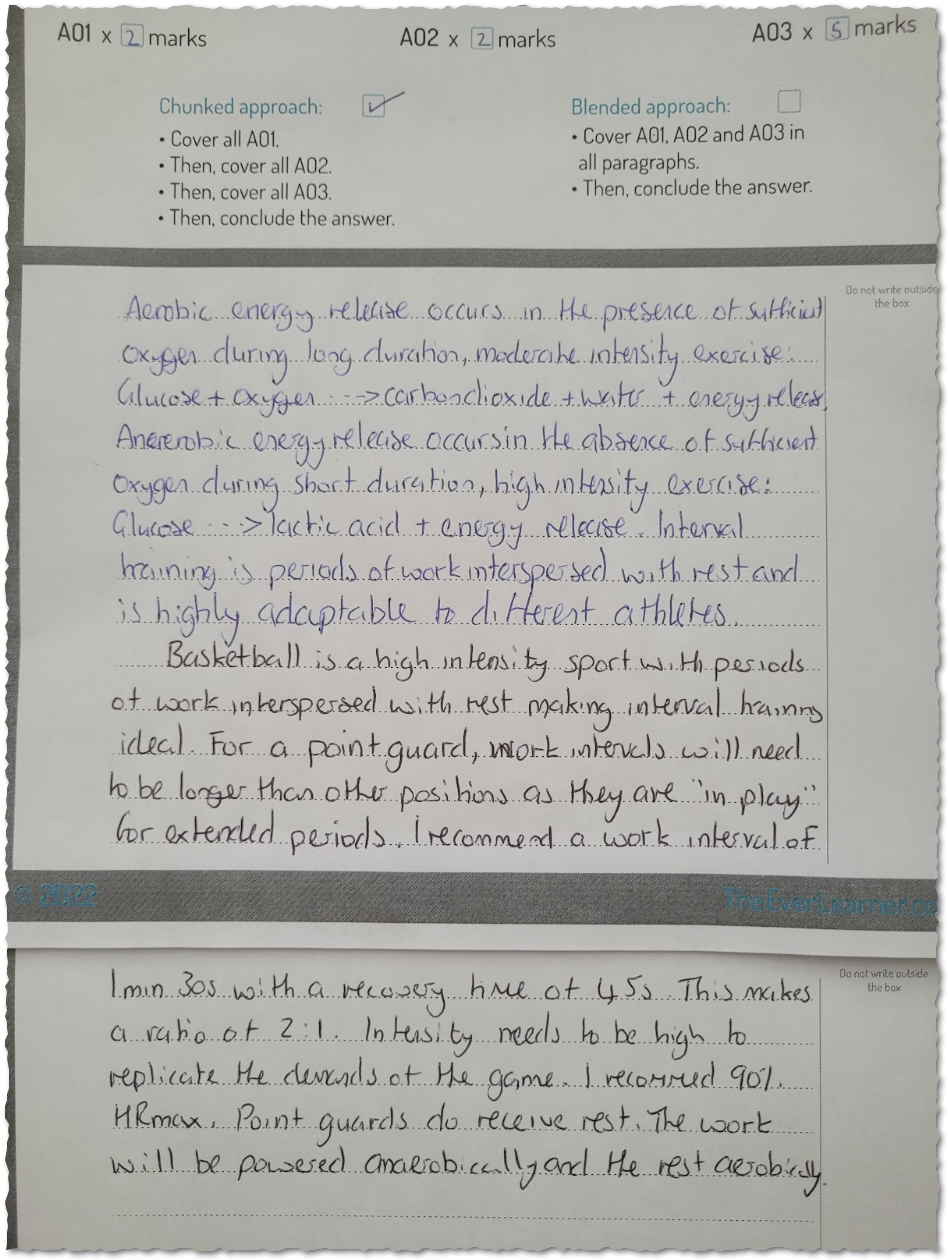 A01 x 2 marks
A02 x 2 marks
A03 x 5 marks
Chunked approach:
• Cover all A01.
• Then, cover all A02.
• Then, cover all A03.
• Then, conclude the answer.
Blended approach:
• Cover A01, A02 and A03 in
all paragraphs.
• Then, conclude the answer.
Do not write outside
the box
Aerobic energy release occurs in the presence of sufficient
oxygen during long duration, moderate intensity exercise:
Glucose + oxygen --> carbondioxide + water + energy release.
Anererobic energy release occurs in the absence of sufficient
oxygen during short duration, high intensity exercise:
Glucose --> lactic acid + energy release. Interval
training is periods of work interspersed with rest and
is highly adaptable to different athletes.
Basketball is a high intensity sport with periods
of work interspersed with rest making interval training
ideal. For a point guard, work intervals will need
to be longer than other positions as they are "in play"
for extended periods. I recommend a work interval of
© 2022
TheEverLearner.co
Do not write outside
the box
1min 30s with a recovery time of 45s. This makes
a ratio of 2:1. Intensity needs to be high to
replicate the demands of the game. I recommed 90%
HRmax. Point guards do receive rest. The work
will be powered anaerobically and the rest aerobically.